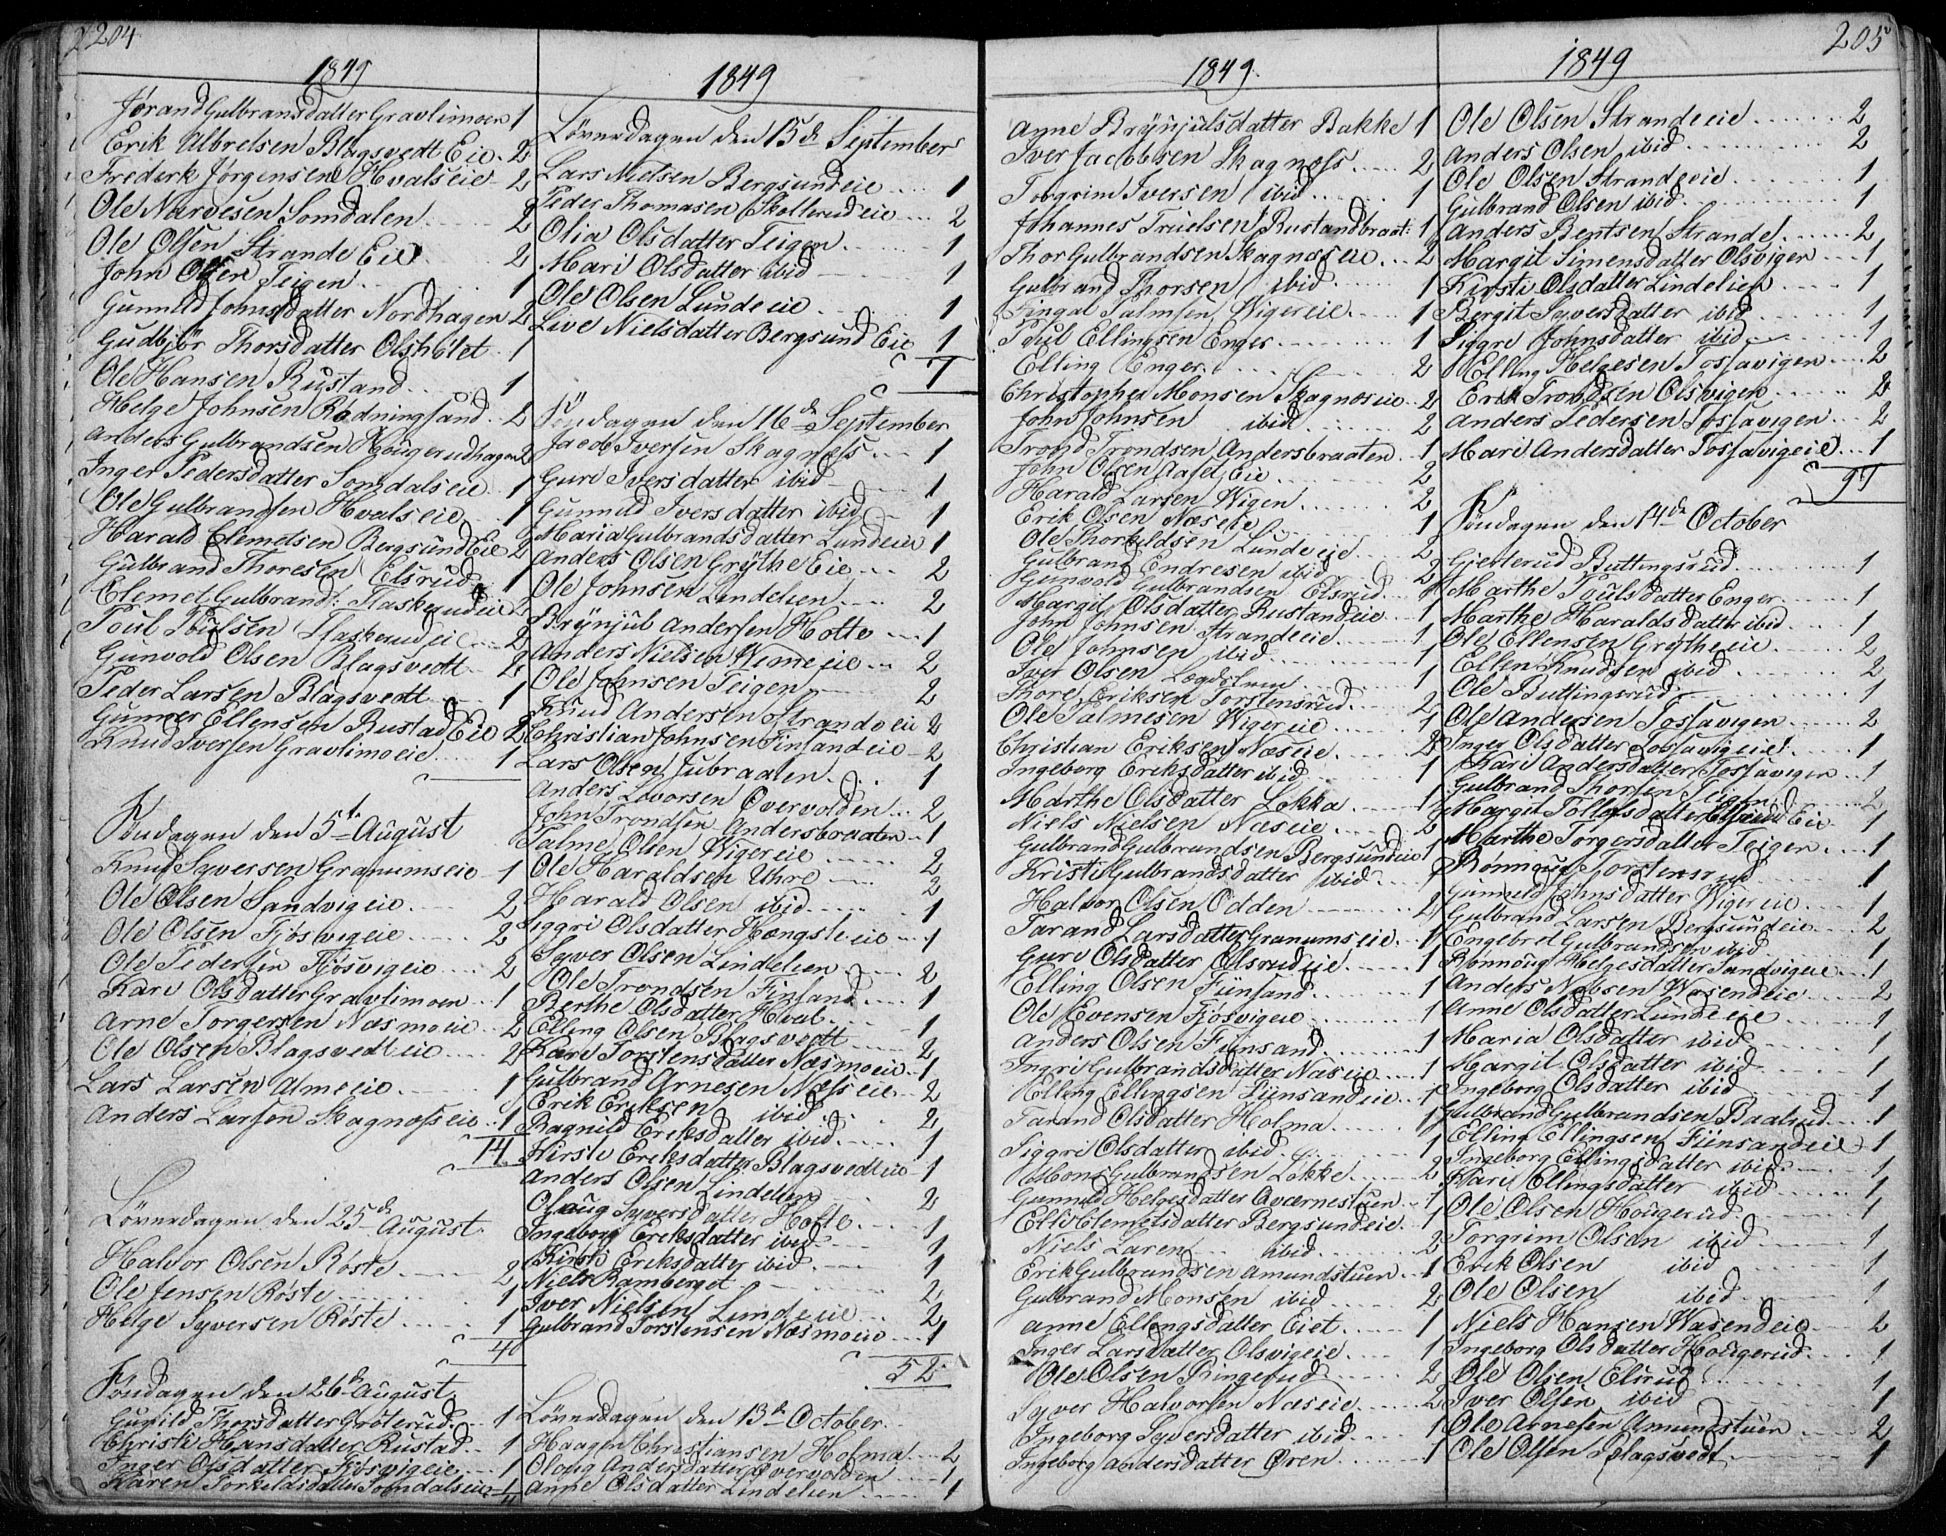 204
1849
Jørand Gulbransdatter Gravlimoen 1
Erik Albretsen Blagsvedt Eie 2
Frederk Jørgensen Hvalseie 2
Ole Narvesen Somdalen 2
Ole Olsen Strande Eie 2
John Olsen Teigen 1
Gunnild Johnsdatter Nordhagen 2
Gudbjør Thorsdatter Olsholet 1
Ole Hansen Rustand 1
Helge Johnsen Rodningsand 2
Anders Gulbrandsen Hougerudhagen 2
Inger Pedersdatter Somdalseie 1
Ole Gulbrandsen Hvalseie 1
Harald Clemetsen Bergsund Eie 2
Gulbrand Thoresen Elsrud 1
Clemet Gulbrand: Flaskerudeie 2
Poul Poulsen Flaskerudeie 2
Gunvold Olsen Blagsvedt 2
Peder Larsen Blagsvedt 1
Gunner Ellensen Rustad Eie 2
Knud Iversen Gravlimoeie 1
Søndagen den 5te August
Knud Syversen Granumseie 1
Ole Olsen Sandvigeie 2
Ole Olsen Fjøsvigeie 2
Ole Pedersen Fjøsvigeie 2
Kari Olsdatter Gravlimoen 1
Arne Torgersen Næsmoeie 2
Ole Olsen Blagsvedteie 2
Lars Larsen Almeie 1
Anders Larsen Skagnæsseie 1
14
Løverdagen den 25de August
Halvor Olsen Røste 2
Ole Jensen Røste 1
Helge Syversen Røste 1
4
Søndagen den 26de August
Gunild Thorsdatter Grøterud 1
Christi Hansdatter Rustad 1
Inger Olsdatter Fjøsvigeie 1
Karen Torkildsdatter Somdalseie 1
4
1849
Løverdagen den 15de September
Lars Nielsen Bergsundeie 1
Peder Thomasen Skollerudeie 2
Olia Olsdatter Teigen 1
Mari Olsdatter ibid 1
Ole Olsen Lundeie 1
Live Nielsdatter Bergsund Eie 1
7
Søndagen den 16de September
Jacob Iversen Skagnæss 1
Guri Iversdatter ibid 1
Gunnild Iversdatter ibid 1
Maria Gulbrandsdatter Lundeie 1
Anders Olsen Grythe Eie 2
Ole Johnsen Lindelien 2
Brynjul Andersen Hotte 1
Anders Nielsen Wemeeie 2
Ole Johnsen Teigen 2
Knud Andersen Strandeeie 2
Christian Johnsen Finsandeie 2
Lars Olsen Jubraaten 1
Anders Levorsen Overvolden 2
John Trondsen Andersbraaten 1
Palme Olsen Wigereie 2
Ole Haraldsen Uhre 2
Harald Olsen ibid 1
Siggri Olsdatter Hængsleeie 1
Syver Olsen Lindelien 2
Ole Trondsen Finsand 1
Berthe Olsdatter Hval 1
Elling Olsen Blagsvedt 2
Kari Torstensdatter Næsmoeie 1
Gulbrand Arnesen Næsseie 2
Erik Eriksen ibid 2
Ragnild Eriksdatter ibid 1
Kirsti Eriksdatter Blagsvedteie 1
Anders Olsen Lindelien 2
Olaug Syversdatter Hotte 1
Ingeborg Eriksdatter ibid 1
Kirsti Eriksdatter ibid 1
Niels Ramberget 2
Iver Nielsen Lundeeie 2
Gulbrand Torstensen Næsmoeie 1
52
Løverdagen den 13de October
Haagen Christiansen Holma 2
Oloug Andersdatter Overvolden 1
Anne Olsdatter Lindelien 1
205
1849
Anne Brynjulsdatter Bakke 1
Iver Jacobsen Skagnæss 2
Torgrim Iversen ibid 1
Johannes Truelsen Rustandbraat: 1
Thor Gulbrandsen Skagnæseie 2
Gulbrand Thorsen ibid 1
Fingal Palmsen Wigereie 1
Poul Ellingsen Enger 1
Elling Enger 2
Christopher Monsen Skagnæseie 2
John Johnsen ibid 2
Trond Trondsen Andersbraaten 1
John Olsen Aasel Eie 2
Harald Larsen Wigen 2
Erik Olsen Næseie 1
Ole Thoraldsen Lundeie 2
Gulbrand Endresen ibid 2
Gunvold Gulbrandsen Elsrud
Margit Olsdatter Rustandeie 1
John Johnsen Strandeeie 1
Ole Johnsen ibid 1
Iver Olsen 1
Thore Eriksen Torstensrud 2
Ole Palmesen Wigereie 1
Christian Eriksen Næseie 2
Ingeborg Eriksdatter ibid 1
Marthe Olsdatter Løkka 1
Niels Nielsen Næseie 2
Gulbrand Gulbrandsen Bergsundeie 1
Kristi Gulbrandsdatter ibid 1
Halvor Olsen Odden 2
Tarand Larsdatter Granumseie 1
Guri Olsdatter Olsrudeie 1
Elling Olsen Fiinsand 1
Ole Evensen Fjøsvigeie 1
Anders Olsen Fiinsand 1
Ingri Gulbrandsdatter Næseie 1
Elling Ellingsen Fiinsandeie 1
Tarand Olsdatter Holma 1
Siggri Olsdatter ibid 1
Mons Gulbrandsen Løkke 2
Gunnild Helgesdatter Qværnestuen 1
Elli Clemetsdatter Bergsundeie 1
Niels Laren ibid 2
Erik Gulbrandsen Amundstuen 1
Gulbrand Monsen ibid 2
Anne Ellingsdatter Eiet 1
Inger Larsdatter Olsvigeie 1
Ole Olsen Ringerud 2
Syver Halvorsen Næseie 2
Ingeborg Syversdatter ibid 1
Ingeborg Andersdatter Øren 1
1849
Ole Olsen Strandeeie 2
Anders Olsen ibid 2
Ole Olsen Strandeeie 1
Gulbrand Olsen ibid 1
Anders Bentsen Strande 2
Margit Simensdatter Olsvigen 1
Kirsti Olsdatter Lindelien 1
Bergit Syversdatter ibid 1
Siggri Johnsdatter ibid 1
Elling Helgesen Tossavigen 2
Erik Trondsen Olsvigen 2
Anders Pedersen Tossavigen 2
Mari Andersdatter Tossavigeie 1
97
Søndagen den 14de October
Gjesterud Buttingsrud 1
Marthe Poulsdatter Enger 1
Marthe Haraldsdatter ibid 1
Ole Ellensen Grytheeie 2
Ellen Knudsen ibid 2
Ole Buttingsrud 1
Ole Andersen Tossavigen 2
Inger Olsdatter Tossavigeie 1
Kari Andersdatter Tossavigen 1
Gulbrand Thorsen Teigen 2
Margit Tollefsdatter Elsrud Eie 1
Marthe Torgersdatter Teigen 1
Rønnoug Torstensrud 1
Gunnild Johnsdatter Wigereie 1
Gulbrand Larsen Bergsundeie 2
Engebret Gulbrandsen ibid 1
Rønnoug Helgesdatter Sandvigeie 1
Anders Nilsen Wasendeie 2
Anne Olsdatter Lundeeie 1
Maria Olsdatter ibid 1
Margit Olsdatter ibid 1
Ingeborg Olsdatter ibid 1
Gulbrand Gulbrandsen Baalsrud 1
Elling Ellingsen Fiinsandeie 1
Ingeborg Ellingsdatter ibid 1
Kari Ellingsdatter ibid 1
Ole Olsen Hougerud 1
Torgrim Olsen ibid 1
Erik Olsen ibid 1
Ole Olsen ibid 1
Niels Hansen Wasendeie 2
Ingeborg Olsdatter Hougerud 1
Ole Olsen Elsrud 1
Iver Olsen ibid 1
Ole Arnesen Amundstuen 2
Ole Olsen Blagsvedt 1